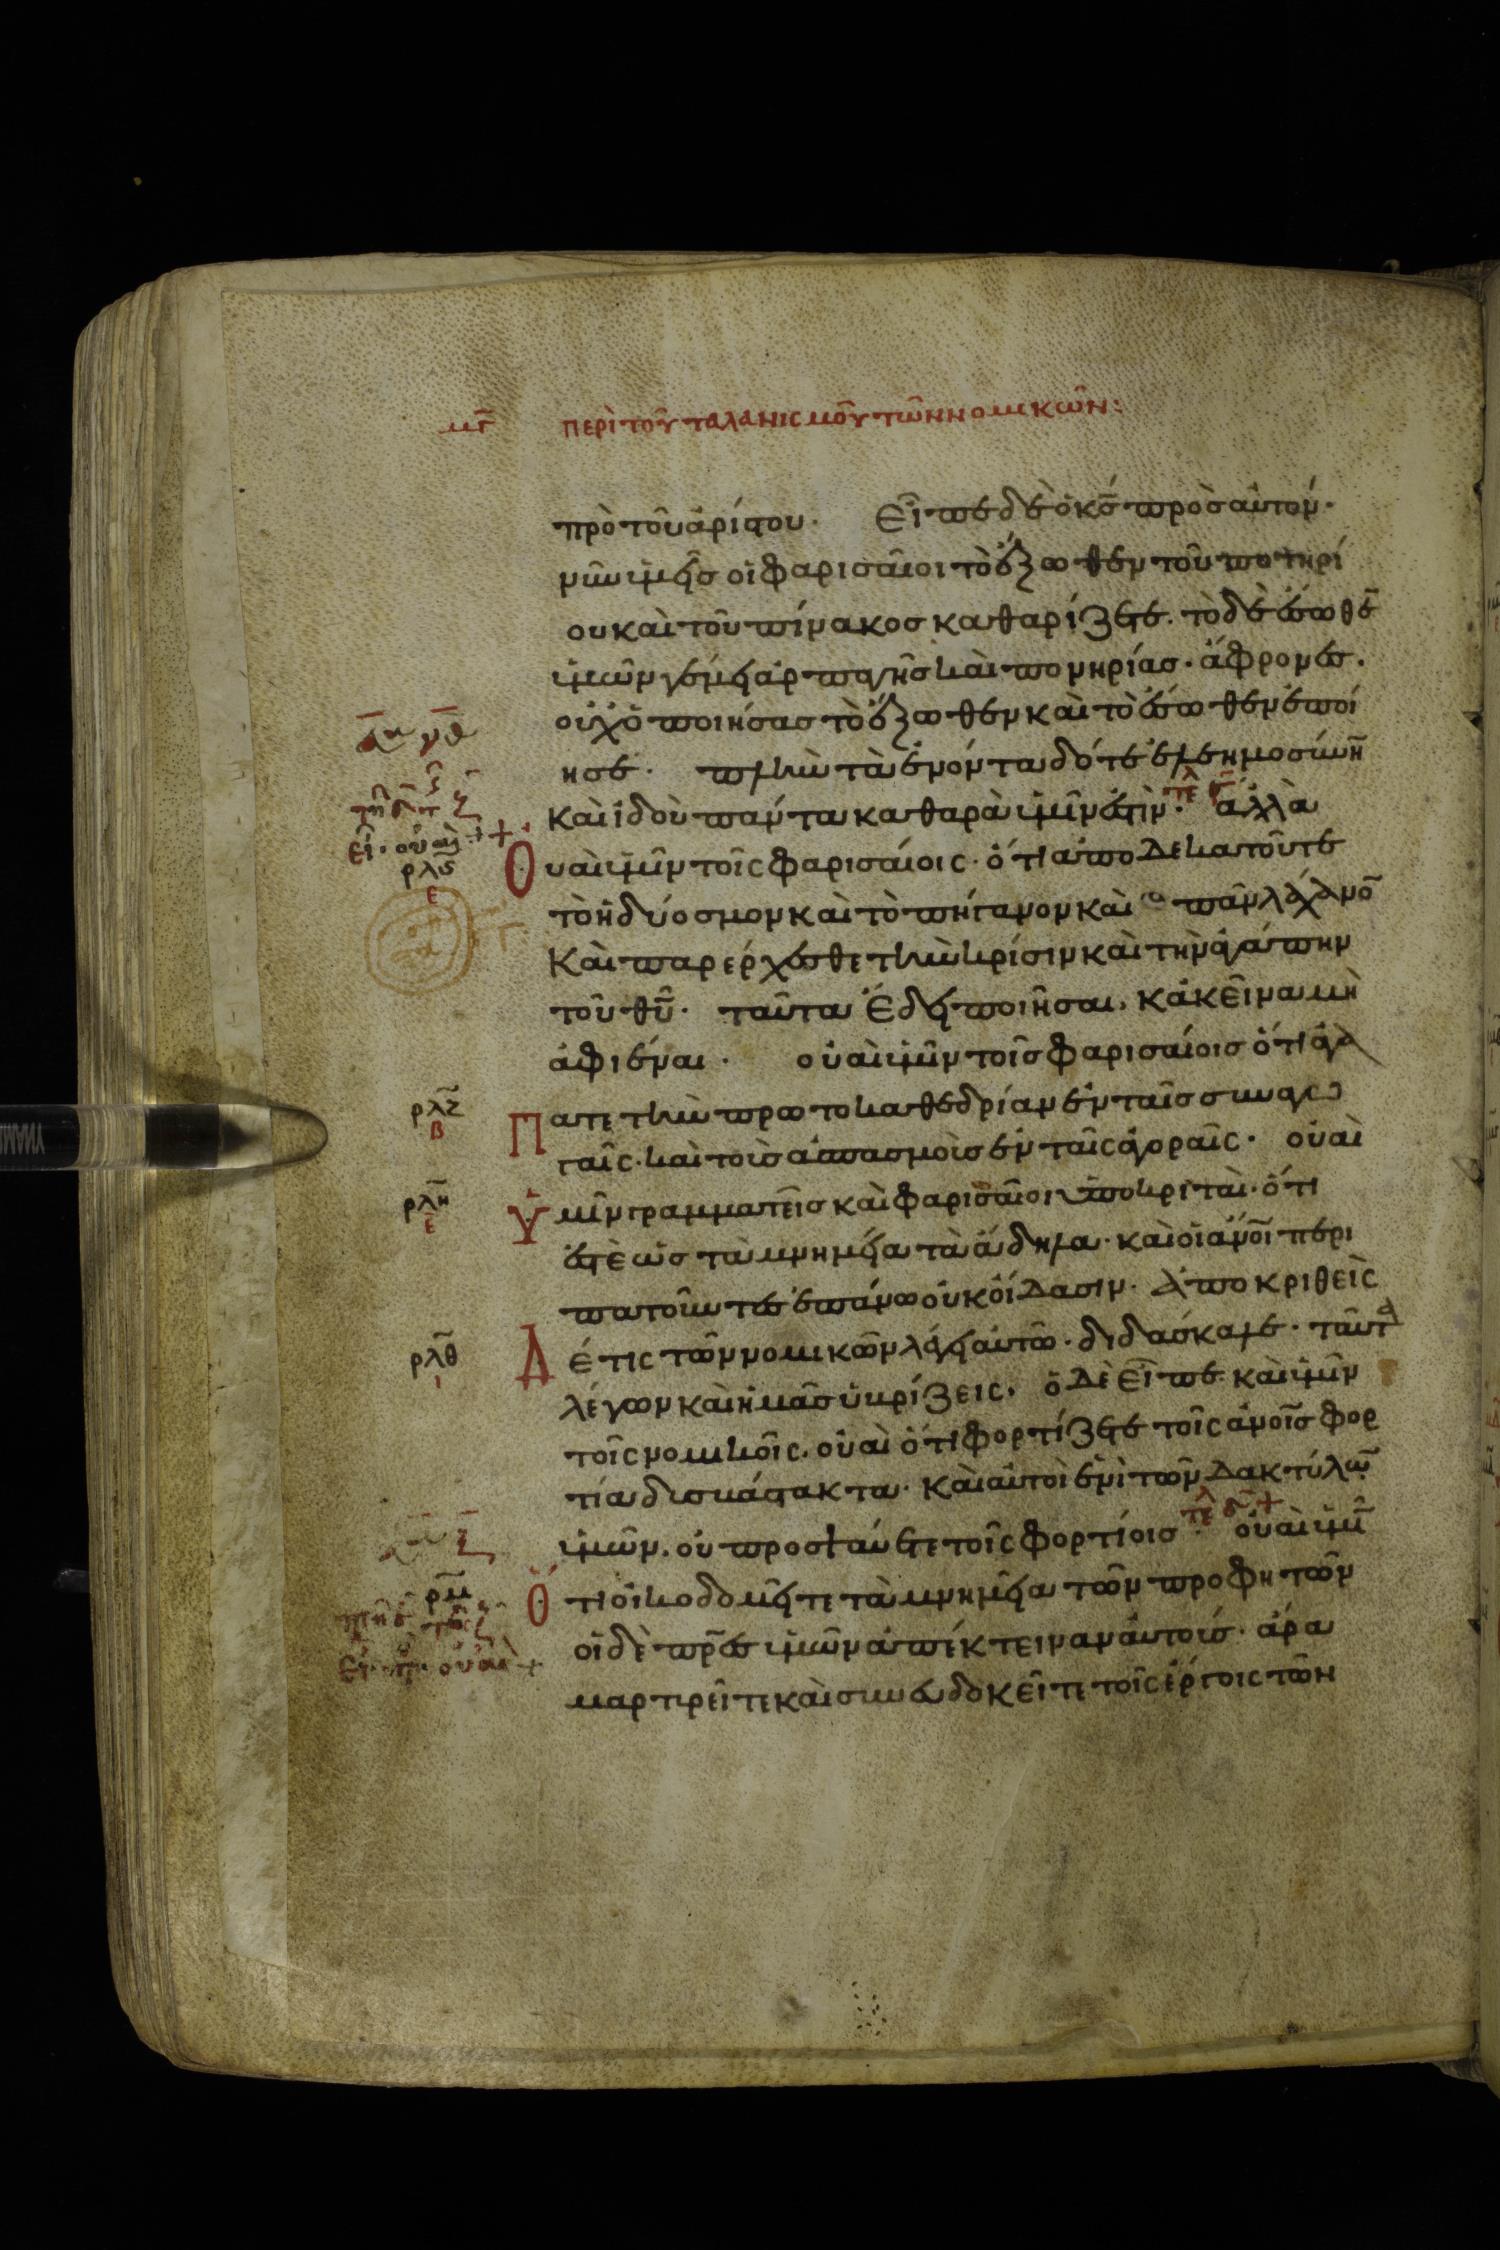 μγ̅ περὶ τοῦ ταλανισμοῦ τῶν νομικῶν:
πρὸ τοῦ ἀρίστου. Εἶπε δὲ ὁ κ̅ς̅ πρὸς αὐτόν.
νῦν ὑμεῖς οἱ φαρισαῖοι τὸ ἔξωθεν τοῦ ποτηρί
ου καὶ τοῦ πίνακος καθαρίζετε. τὸ δὲ ἔσωθε̅
ὑμῶν γέμει ἁρπαγῆς καὶ πονηρίας. ἄφρονες.
οὐχ ὁ ποιήσας τὸ ἔξωθεν καὶ τὸ ἔσωθεν ἐποί
ησε. πλὴν τὰ ἐνόντα δότε ἐλεημοσύνη̅
καὶ ἰδοὺ πάντα καθαρὰ ὑμῖν ἐστὶν. τελ ἀλλὰ
Οὐαὶ ὑμῖν τοῖς φαρισαίοις. ὅτι ἀποδεκατοῦτε
ρλϛ
ε
τὸ ἡδύοσμον καὶ τὸ πήγανον καὶ πᾶν λάχανο̅
καὶ παρέρχεσθε τὴν κρίσιν καὶ τὴν ἀγάπην
τοῦ θ̅υ̅. ταῦτα ἔδει ποιῆσαι, κἀκεῖνα μὴ
ἀφιέναι. οὐαὶ ὑμῖν τοῖς φαρισαίοις ὅτι ἀγα
ρλζ
β
Πᾶτε τὴν πρωτοκαθεδρίαν ἐν ταῖς συναγω
γαῖς. καὶ τοὺς ἀσπασμοὺς ἐν ταῖς ἀγοραῖς. οὐαὶ
ρλη
ε
Ὑμῖν γραμματεῖς καὶ φαρισαῖοι ὑποκριταὶ. ὅτι
ἐστὲ ὡς τὰ μνημεῖα τὰ ἄδηλα. καὶ οἱ ἄν̅οι̅ περι
πατοῦντες ἐπάνω οὐκ οἴδασιν. Ἀποκριθεὶς
ρλθ
ι
Δέ τις τῶν νομικῶν λέγει αὐτῶ. διδάσκαλε. ταῦτα
λέγων καὶ ἡμᾶς ὑβρίζεις. ὁ δὲ εἶπε. καὶ ὑμῖν
τοῖς νομικοῖς. οὐαὶ ὅτι φορτίζετε τοῖς ἀν̅οι̅ς φορ
τία δυσβάστακτα. καὶ αὐτοὶ ἑνὶ τῶν δακτύλω̅
ὑμῶν. οὐ προσψαύετε τοῖς φορτίοις. τελ οὐαὶ ὑμῖ̅
ρμ
Ὅτι οἰκοδομεῖτε τὰ μνημεῖα τῶν προφητῶν
οἱ δὲ π̅ρ̅ες ὑμῶν ἀπέκτειναν αὐτούς. ἄρα
μαρτυρεῖτε καὶ συνευδοκεῖτε τοῖς ἔργοις τῶν